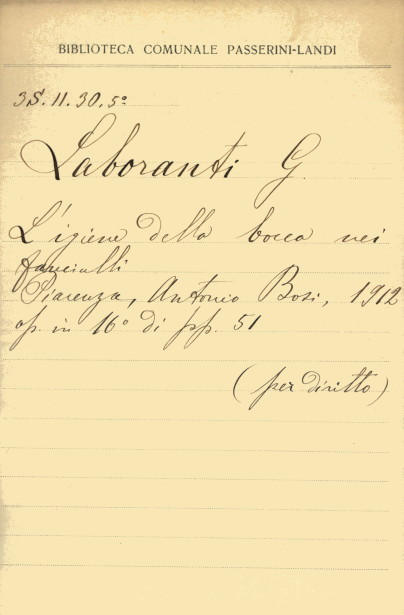 BIBLIOTECA COMUNALE PASSERINI-LANDI
3S.11.30.5º
Laboranti G.
L'igiene della bocca nei
fanciulli
Piacenza, Antonio Bosi, 1912
op. in 16º di pp. 51
(per diritto)